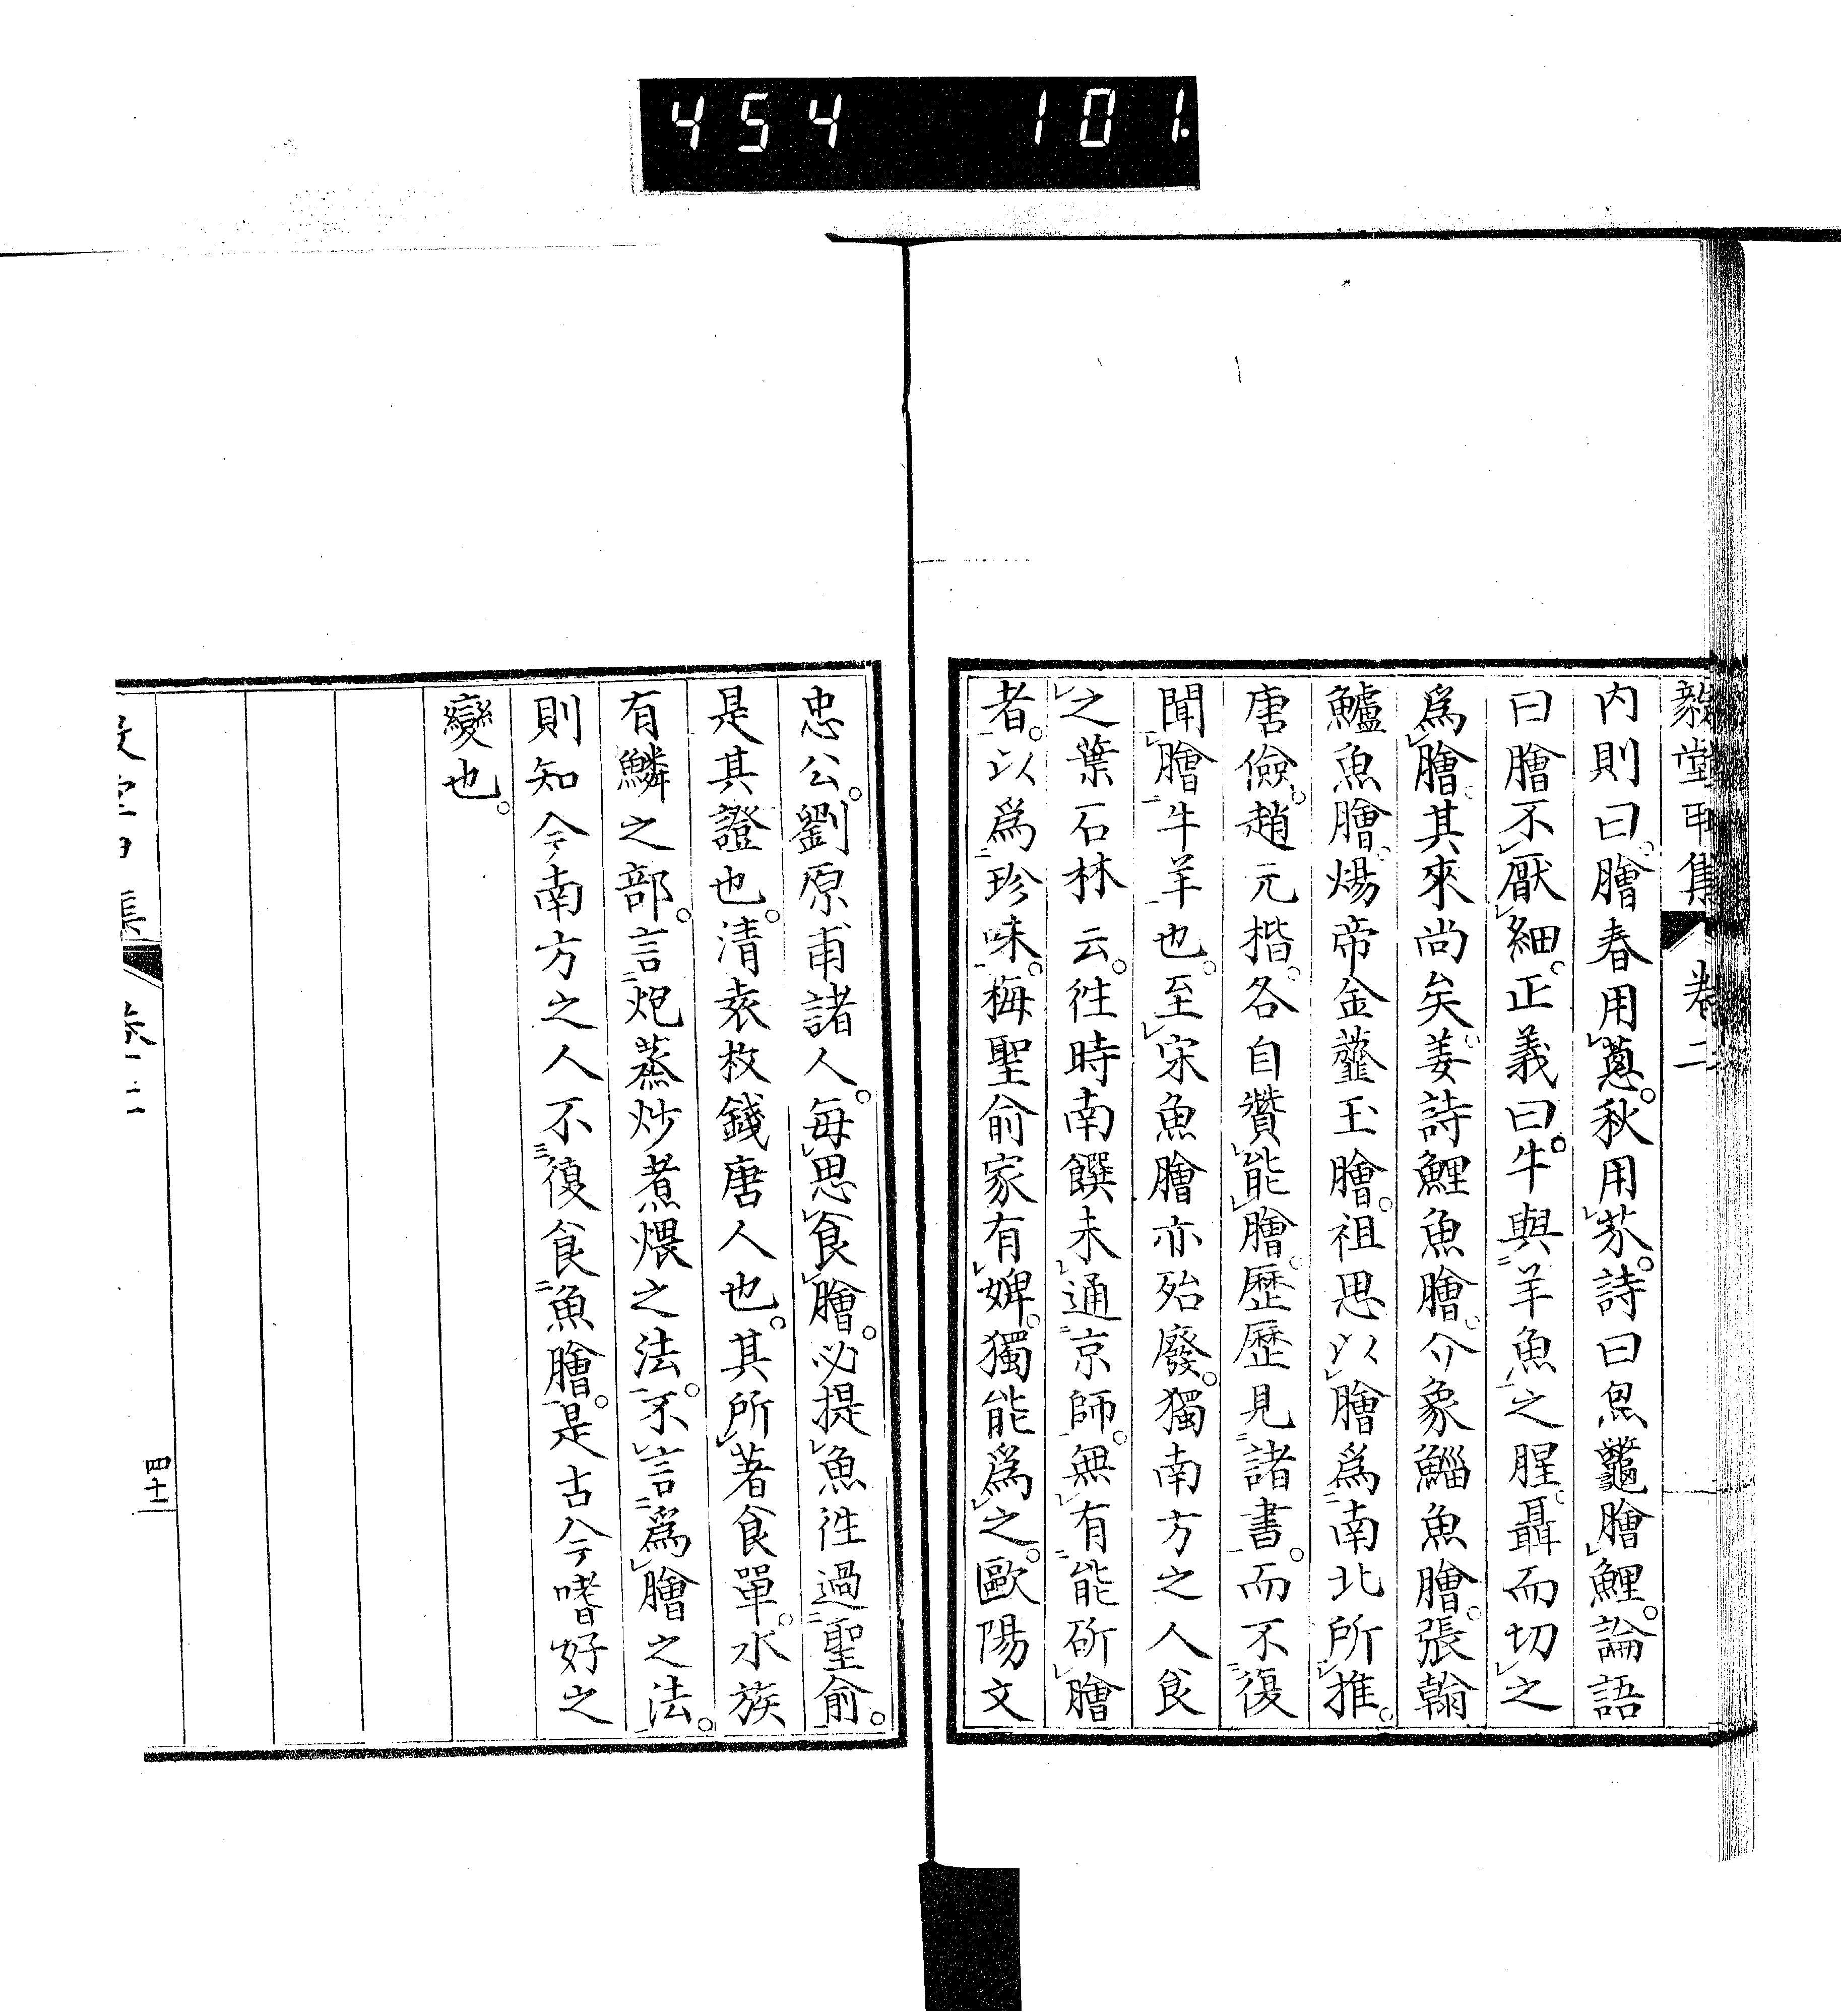 454 101.
毅堂丙集 卷二
内則曰。膾春用蔥。秋用芥。詩曰炰鼈膾鯉。論語
曰膾不厭細。正義曰。牛與羊魚之腥。聶而切之
爲膾。其來尚矣。姜詩鯉魚膾。介象鯔魚膾。張翰
鱸魚膾。煬帝金虀玉膾。祖思以膾爲南北所推。
唐儉。趙元楷。各自贊能膾。歷歷見諸書。而不復
聞膾牛羊也。至宋魚膾亦殆廢。獨南方之人食
之葉石林云。往時南饌未通京師。無有能斫膾
者。以爲珍味。梅聖俞家有婢。獨能爲之。歐陽文
忠公。劉原甫諸人。每思食膾。必提魚往過聖俞。
是其證也。清袁枚錢唐人也。其所著食單。水族
有鱗之部。言炮蒸炒煮煨之法。不言爲膾之法。
則知今南方之人不復食魚膾。是古今嗜好之
變也。
四十一